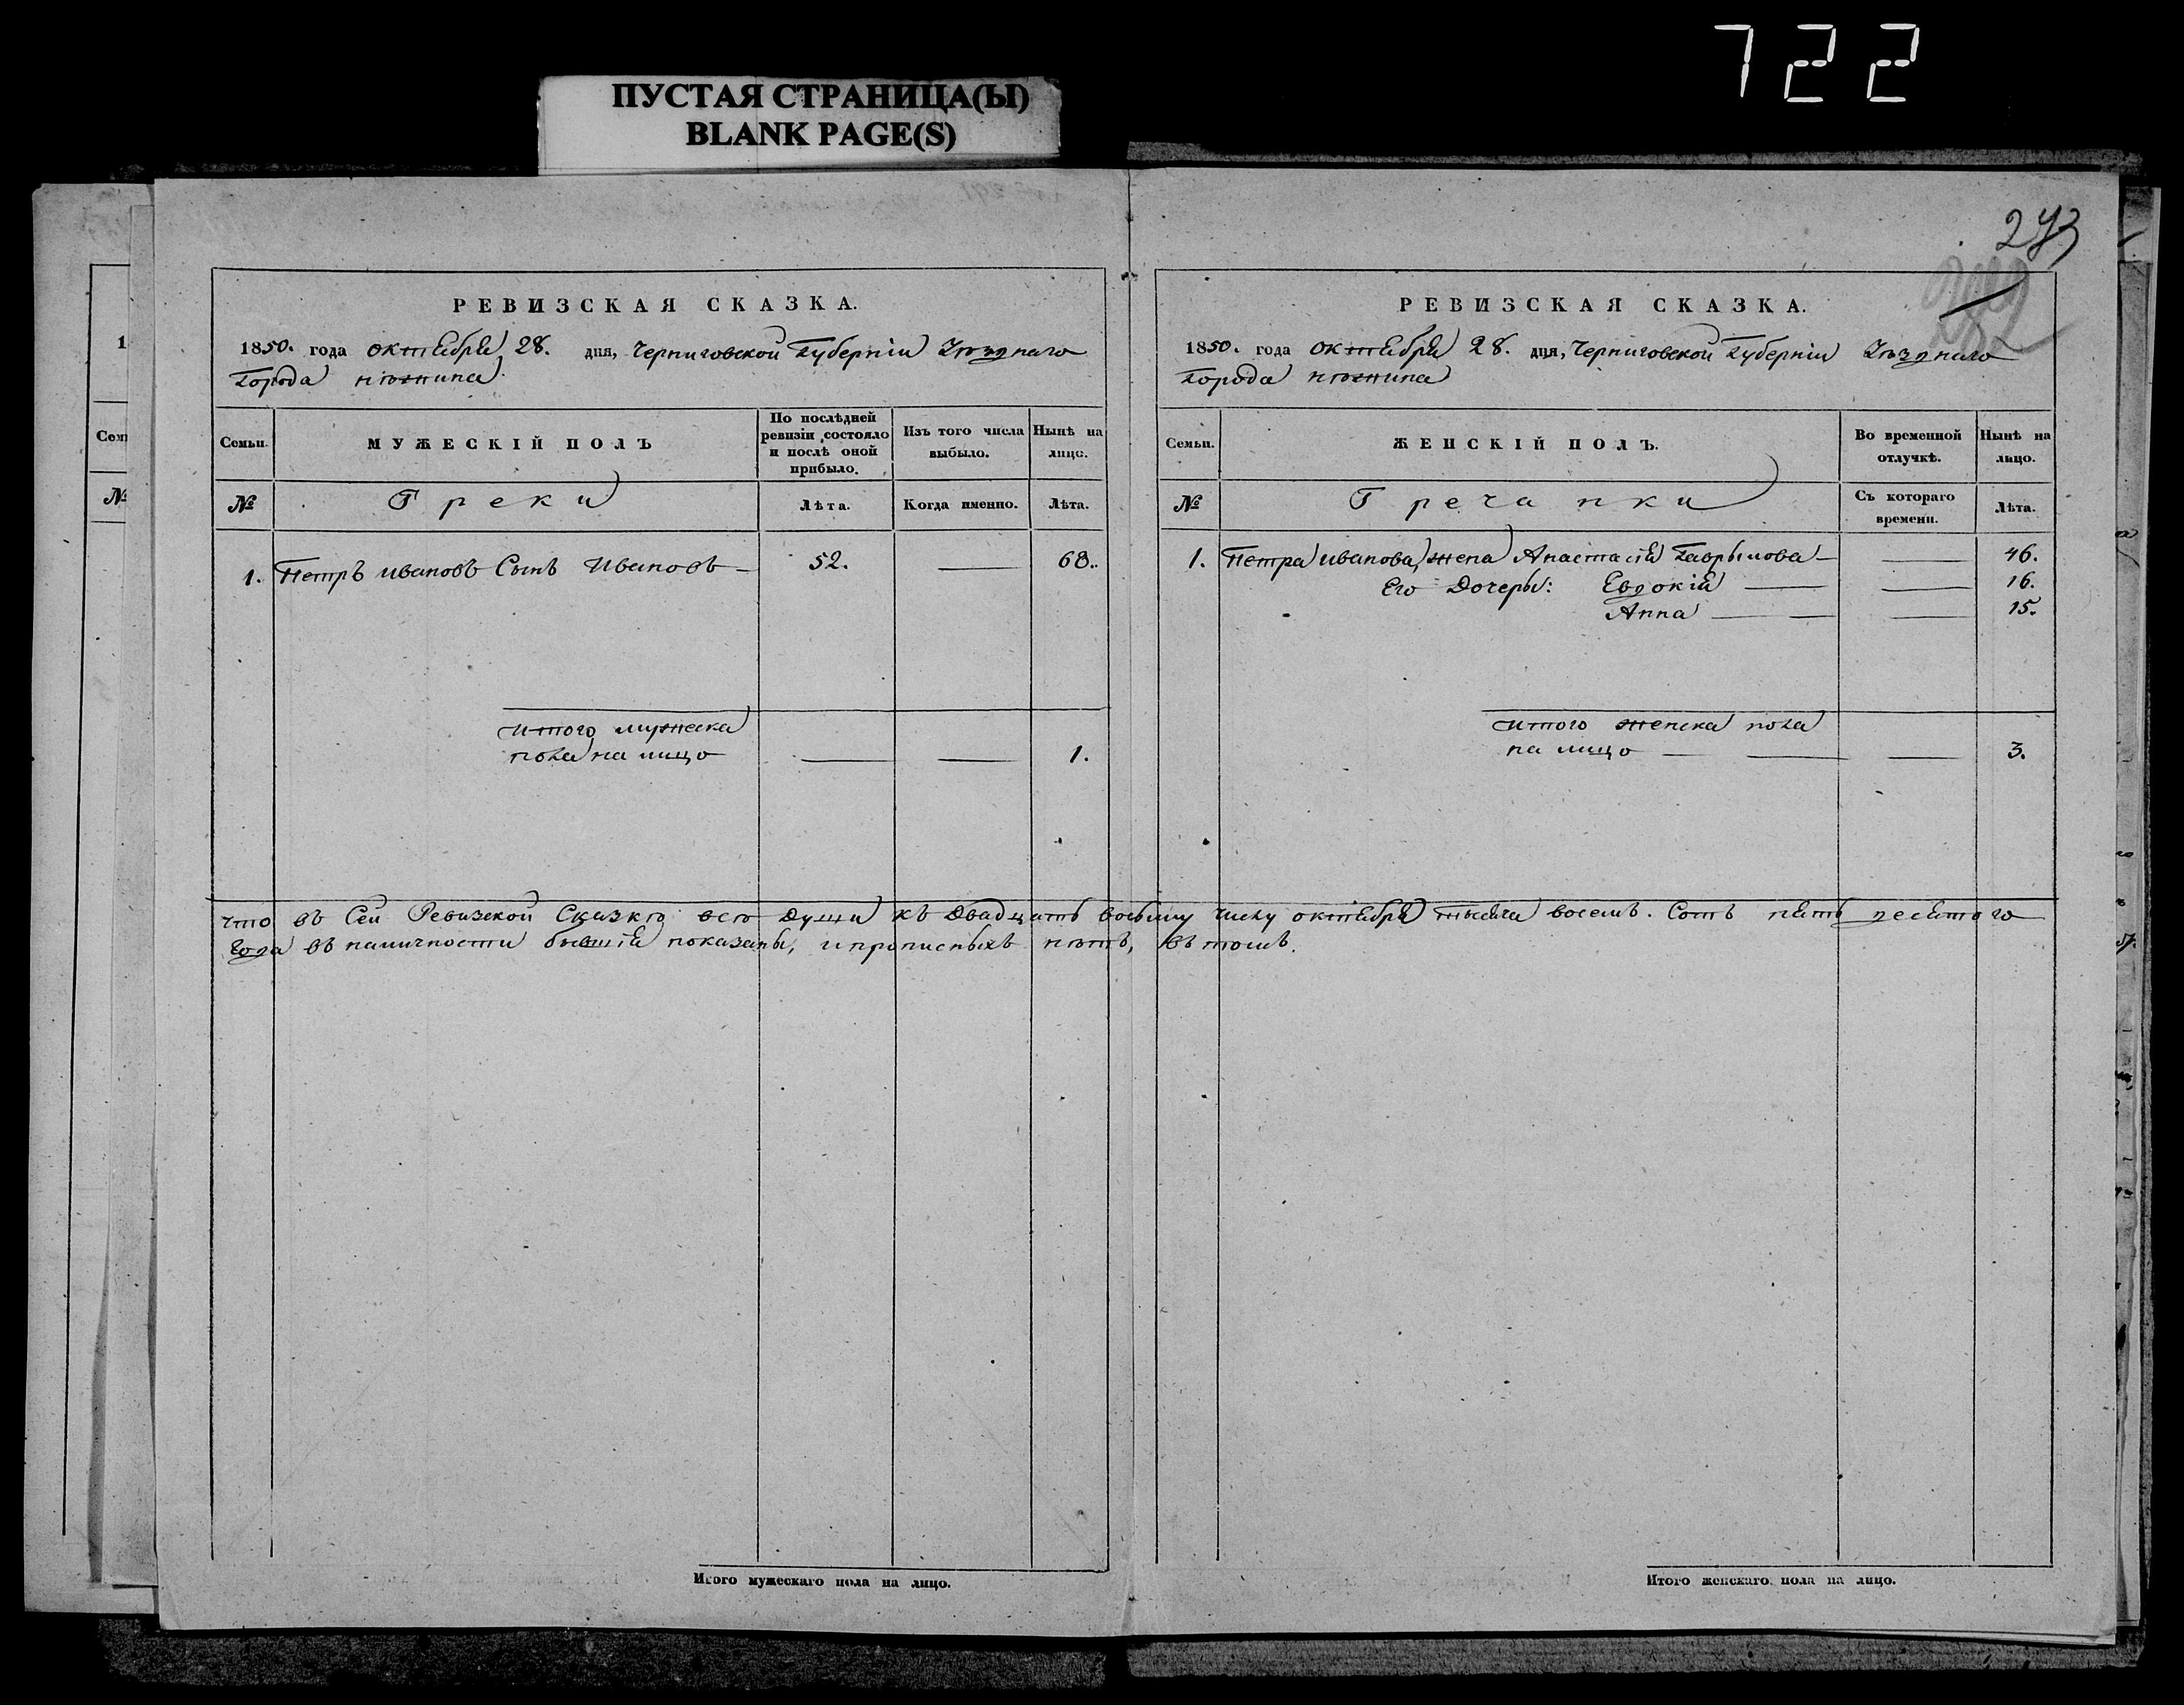 722
ПУСТАЯ СТРАНИЦА(Ы)
BLANK PAGE(S)
293
РЕВИЗСКАЯ СКАЗКА.
1850. года октября 28. дня, Черниговской Губерніи Уѣзднаго
Города Нѣжина.
Семьи.
МУЖЕСКІЙ ПОЛЪ
По послѣдней ревизіи состояло и послѣ оной прибыло.
Изъ того числа выбыло.
Нынѣ на лицо.
№
Греки
Лѣта.
Когда именно.
Лѣта.
1. Петръ Ивановъ Сынъ Ивановъ — 52. — 68.
Итого мужеска
пола на лицо — — 1.
РЕВИЗСКАЯ СКАЗКА.
1850. года октября 28. дня, Черниговской Губерніи Уѣзднаго
Города Нѣжина
Семьи.
ЖЕНСКІЙ ПОЛЪ.
Во временной отлучкѣ.
Нынѣ на лицо.
№
Гречанки
Съ котораго времени.
Лѣта.
1. Петра Иванова жена Анастасія Гаврылова — — 46.
Его Дочеры: Евдокія — — 16.
Анна — — 15.
Итого женска пола
на лицо — — — 3.
Что въ Сей Ревизской Сказкѣ всѣ Души къ Двадцать восьмму числу октября тысяча восемъ. Сотъ пять десятого
Года въ наличности бывшія показаны, и прописныхъ нѣтъ, въ томъ.
Итого мужескаго пола на лицо.
Итого женскаго пола на лицо.